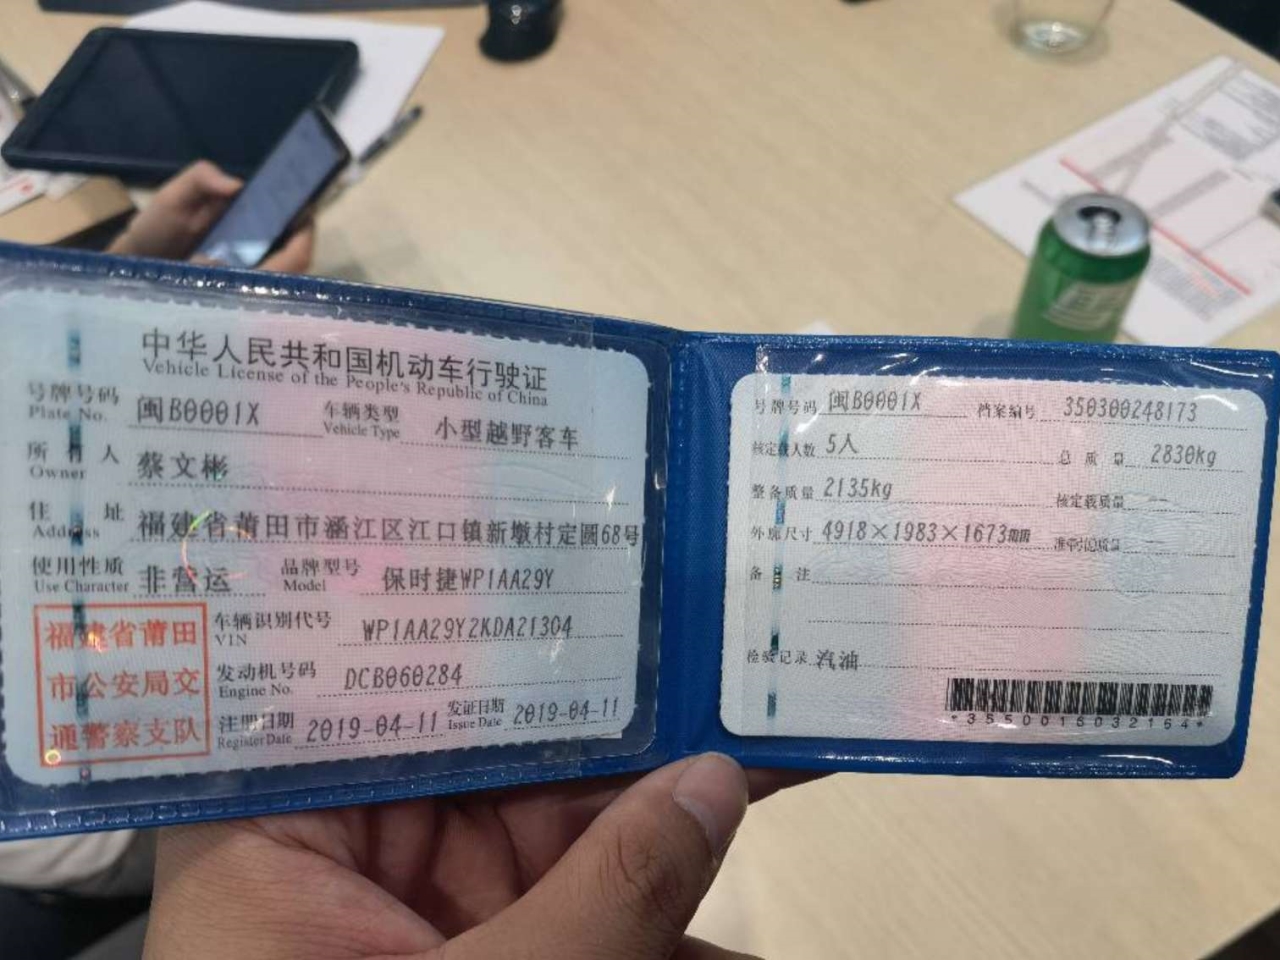 中华人民共和国机动车行驶证
Vehicle License of the People's Republic of China
号牌号码 Plate No. 闽B0001X 车辆类型 Vehicle Type 小型越野客车
所有人 Owner 蔡文彬
住址 Address 福建省莆田市涵江区江口镇新墩村定圆68号
使用性质 Use Character 非营运 品牌型号 Model 保时捷WP1AA29Y
车辆识别代号 VIN WP1AA29Y2KDA21304
发动机号码 Engine No. DCB060284
注册日期 Register Date 2019-04-11 发证日期 Issue Date 2019-04-11
福建省莆田
市公安局交
通警察支队
号牌号码 闽B0001X 档案编号 350300248173
核定载人数 5人 总质量 2830kg
整备质量 2135kg 核定载质量 --
外廓尺寸 4918×1983×1673mm 准牵引总质量 --
备注
检验记录 汽油
*3550016032164*